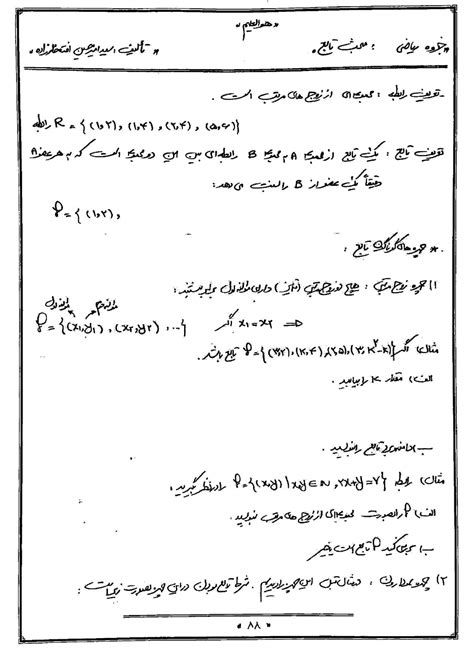 هوالعلیم
جزوه ریاضی : مبحث تابع * * تألیف : سید امیرحسین افتخارزاده *
- تعریف رابطه : مجموعه‌ای از زوج های مرتب است .
رابطه R = {(1,2), (1,4), (2,4), (5,6)}
تعریف تابع : یک تابع از مجموعه A به مجموعه B رابطه‌ای بین این دو مجموعه است که به هر عضو A
دقیقاً یک عضو از B را نسبت می دهد :
f = {(1,2),
* چهره های گوناگون تابع :
1) چهره زوج مرتبی : هیچ دو زوج مرتبی (متمایز) دارای مولفه اول برابر نیستند :
مولفه اول مولفه دوم
f = {(x1,y1), (x2,y2) ...} اگر x1 = x2 ⇒
مثال) اگر f = {(3,2), (2,4), (2,5), (3,k²-k)} تابع باشد.
الف) مقدار k را بیابید .
ب) دامنه‌ی تابع را بنویسید .
مثال) رابطه f = {(x,y) | x,y ∈ N, 2x+y=7} را در نظر بگیرید :
الف) f را بصورت مجموعه‌ای از زوج های مرتب بنویسید .
ب) بررسی کنید f تابع است یا خیر
2) چهره نموداری : مثال قبل این چهره را داریم . شرط تابع بودن در این چهره بصورت زیر است :
* 88 *